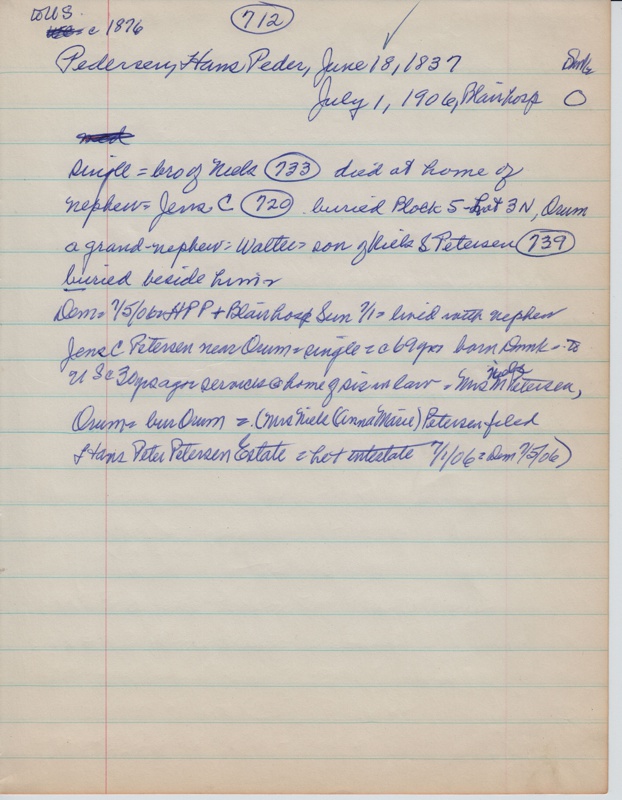 to U.S.
c 1876
712
Pedersen, Hans Peder, June 18, 1837
Dmk
July 1, 1906, Blair hosp O
single = bro of Niels 733 died at home of
nephew = Jens C 729 buried Block 5 - Lot 3 N, Orum
a grand-nephew = Walter = son of Niels S Petersen 739
buried beside him =
Dem = 7/5/06 = HPP + Blair hosp Sun 7/1 = lived with nephew
Jens C Petersen near Orum = single = c 69 yrs born Dnmk = to
U S c 30 yrs ago = services @ home of sis in law = Mrs Niels Petersen,
Orum = bur Orum = (Mrs Niels (Anna Marie) Petersen filed
Hans Peter Petersen Estate = intestate 7/1/06 = Dem 7/5/06)